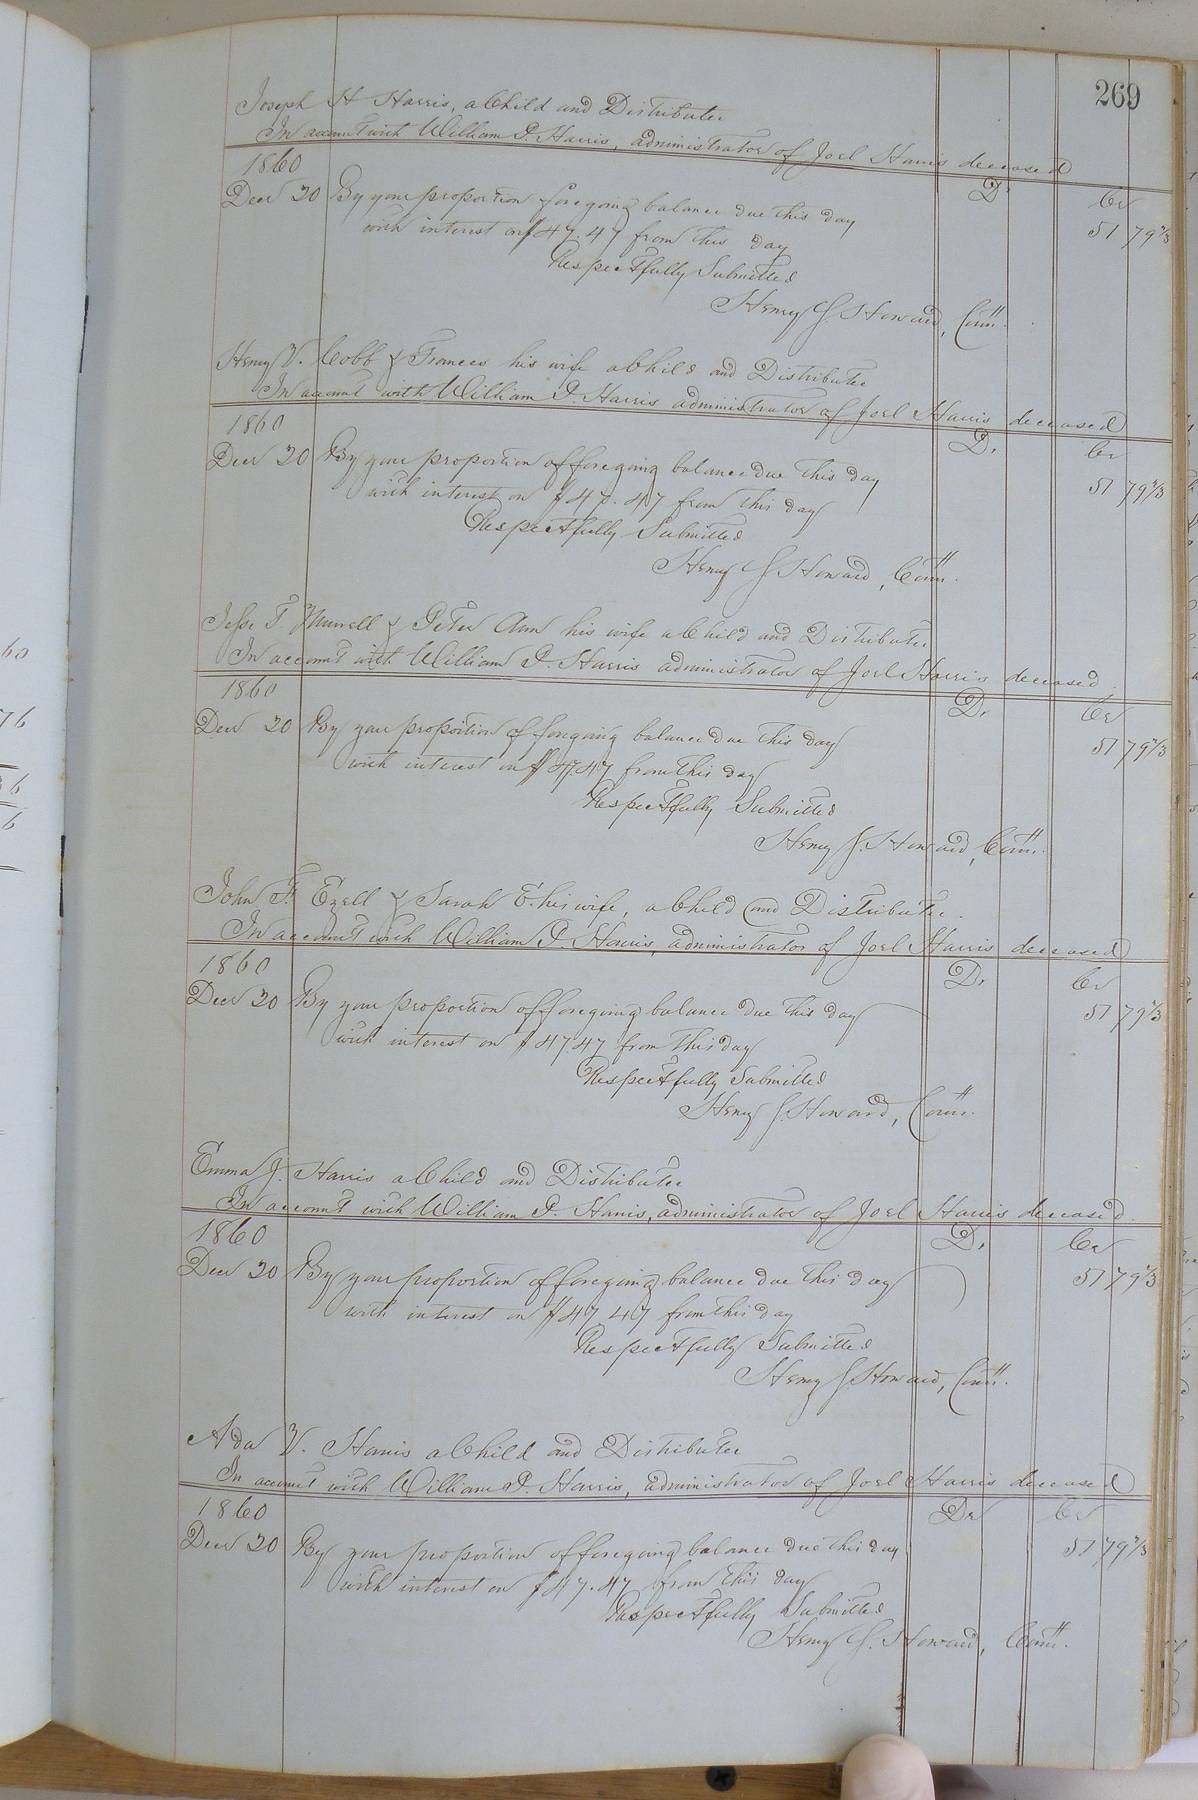 269
Joseph H Harris, a Child and Distributee
In account with William P. Harris, administrator of Joel Harris deceased
1860
Dr Cr
Decr 20 By your proportion foregoing balance due this day 51 79 2/3
with interest on $47.47 from this day
Respectfully Submitted
Henry J Howard, Comr.
Henry V. Cobb & Frances his wife a Child and Distributee
In account with William P. Harris administrator of Joel Harris deceased
1860
Dr. Cr
Decr 20 By your proportion of foregoing balance due this day 51 79 2/3
with interest on $47.47 from this day
Respectfully Submitted
Henry J Howard, Comr.
Jesse T. Murrell & Peter Ann his wife a Child and Distributee
In account with William P. Harris administrator of Joel Harris deceased
1860
Dr. Cr
Decr 20 By your proportion of foregoing balance due this day 51 79 2/3
with interest on $47.47 from this day
Respectfully Submitted
Henry J. Howard, Comr.
John F. Ezell & Sarah E. his wife, a Child and Distributee.
In account with William P. Harris, administrator of Joel Harris deceased
1860
Dr. Cr
Decr 20 By your proportion of foregoing balance due this day 51 79 2/3
with interest on $47.47 from this day
Respectfully Submitted
Henry J. Howard, Comr.
Emma J. Harris a Child and Distributee
In account with William P. Harris, administrator of Joel Harris deceased.
1860
Dr. Cr
Decr 20 By your proportion of foregoing balance due this day 51 79 2/3
with interest on $47.47 from this day
Respectfully Submitted
Henry J Howard, Comr.
Ada V. Harris a Child and Distributee
In account with William P. Harris, administrator of Joel Harris deceased
1860
Dr Cr
Decr 20 By your proportion of foregoing balance due this day 51 79 2/3
with interest on $47.47 from this day
Respectfully Submitted
Henry J. Howard, Comr.